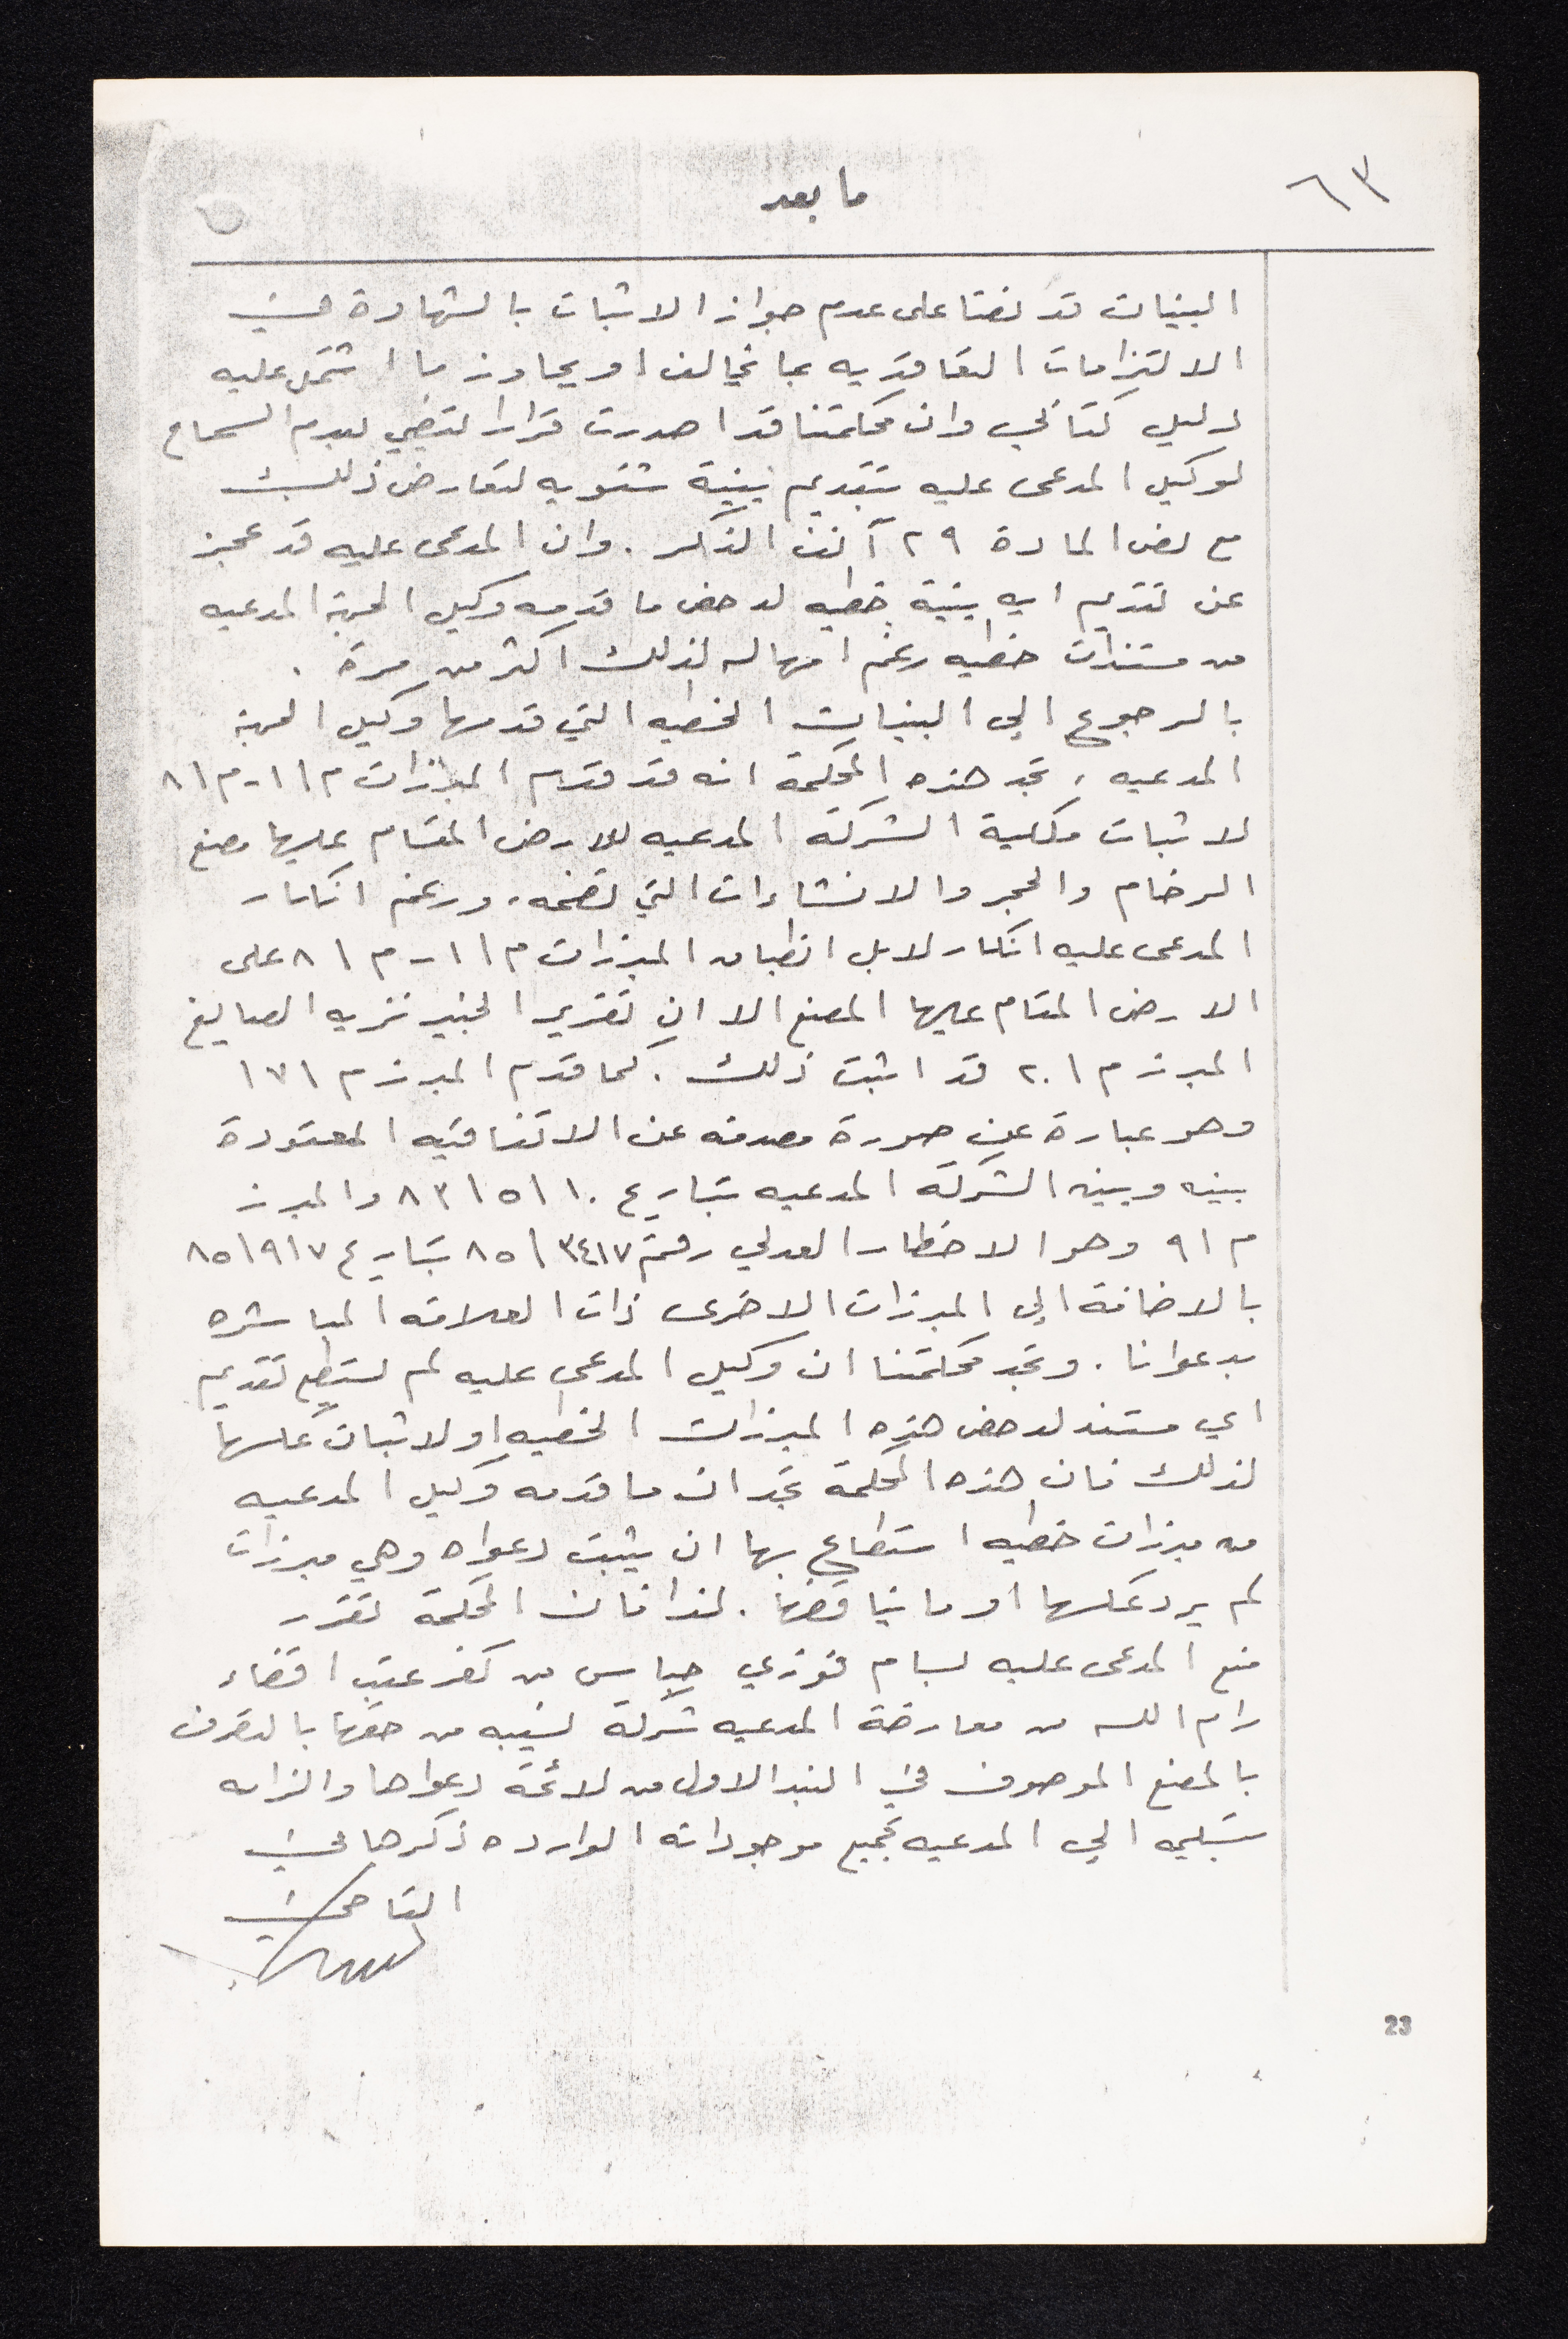 ٦٣
ما بعد
البينات قد نصتا على عدم جواز الاثبات بالشهادة في
الالتزامات التعاقديه بما يخالف او يجاوز ما اشتمل عليه
دليل كتابي وان محكمتنا قد اصدرت قرارا يقضي بعدم السماح
لوكيل المدعى عليه بتقديم بينة شفويه لتعارض ذلك
مع نص المادة ٢٩ آنفت الذكر . وان المدعى عليه قد عجز
عن تقديم ايه بينة خطيه لدحض ما قدمه وكيل الجهة المدعيه
من مستندات خطيه رغم امهاله لذلك اكثر من مرة .
بالرجوع الى البينات الخطيه التي قدمها وكيل الجهة
المدعيه ، تجد هذه المحكمة انه قد قدم المبرزات م/١-م/٨
لاثبات ملكية الشركة المدعيه للارض المقام عليها مصنع
الرخام والحجر والانشاءات التي تضمه، ورغم انكار
المدعى عليه انكار لابل انطباق المبرزات م/١-م/٨ على
الارض المقام عليها المصنع الا ان تقرير الخبير نزيه الصايغ
المبرز م/٢٠ قد اثبت ذلك . كما قدم المبرز م/١٧
وهو عبارة عن صورة مصدقه عن الاتفاقيه المعقودة
بينه وبين الشركة المدعيه بتاريخ ١٠/٥/٨٣ والمبرز
م/٩ وهو الاخطار العدلي رقم ٣٤١٧/٨٥ بتاريخ ٧/٩/٨٥
بالاضافة الى المبرزات الاخرى ذات العلاقه المباشره
بدعوانا . وتجد محكمتنا ان وكيل المدعى عليه لم يستطع تقديم
اي مستند لدحض هذه المبرزات الخطيه او لاثبات عكسها
لذلك فان هذه المحكمة تجد ان ما قدمه وكيل المدعيه
من مبرزات خطيه استطاع بها ان يثبت دعواه وهي مبرزات
لم يرد عكسها او ما يناقضها . لذا فان المحكمة تقرر
منع المدعى عليه بسام فوزي من كفر عقب / قضاء
رام الله من معارضة المدعيه شركة نسيبه من حقها بالتصرف
بالمصنع الموصوف في البند الاول من لائحة دعواها والزامه
بتسليمه الى المدعيه بجميع موجوداته الوارده ذكرها في
القاضي
23